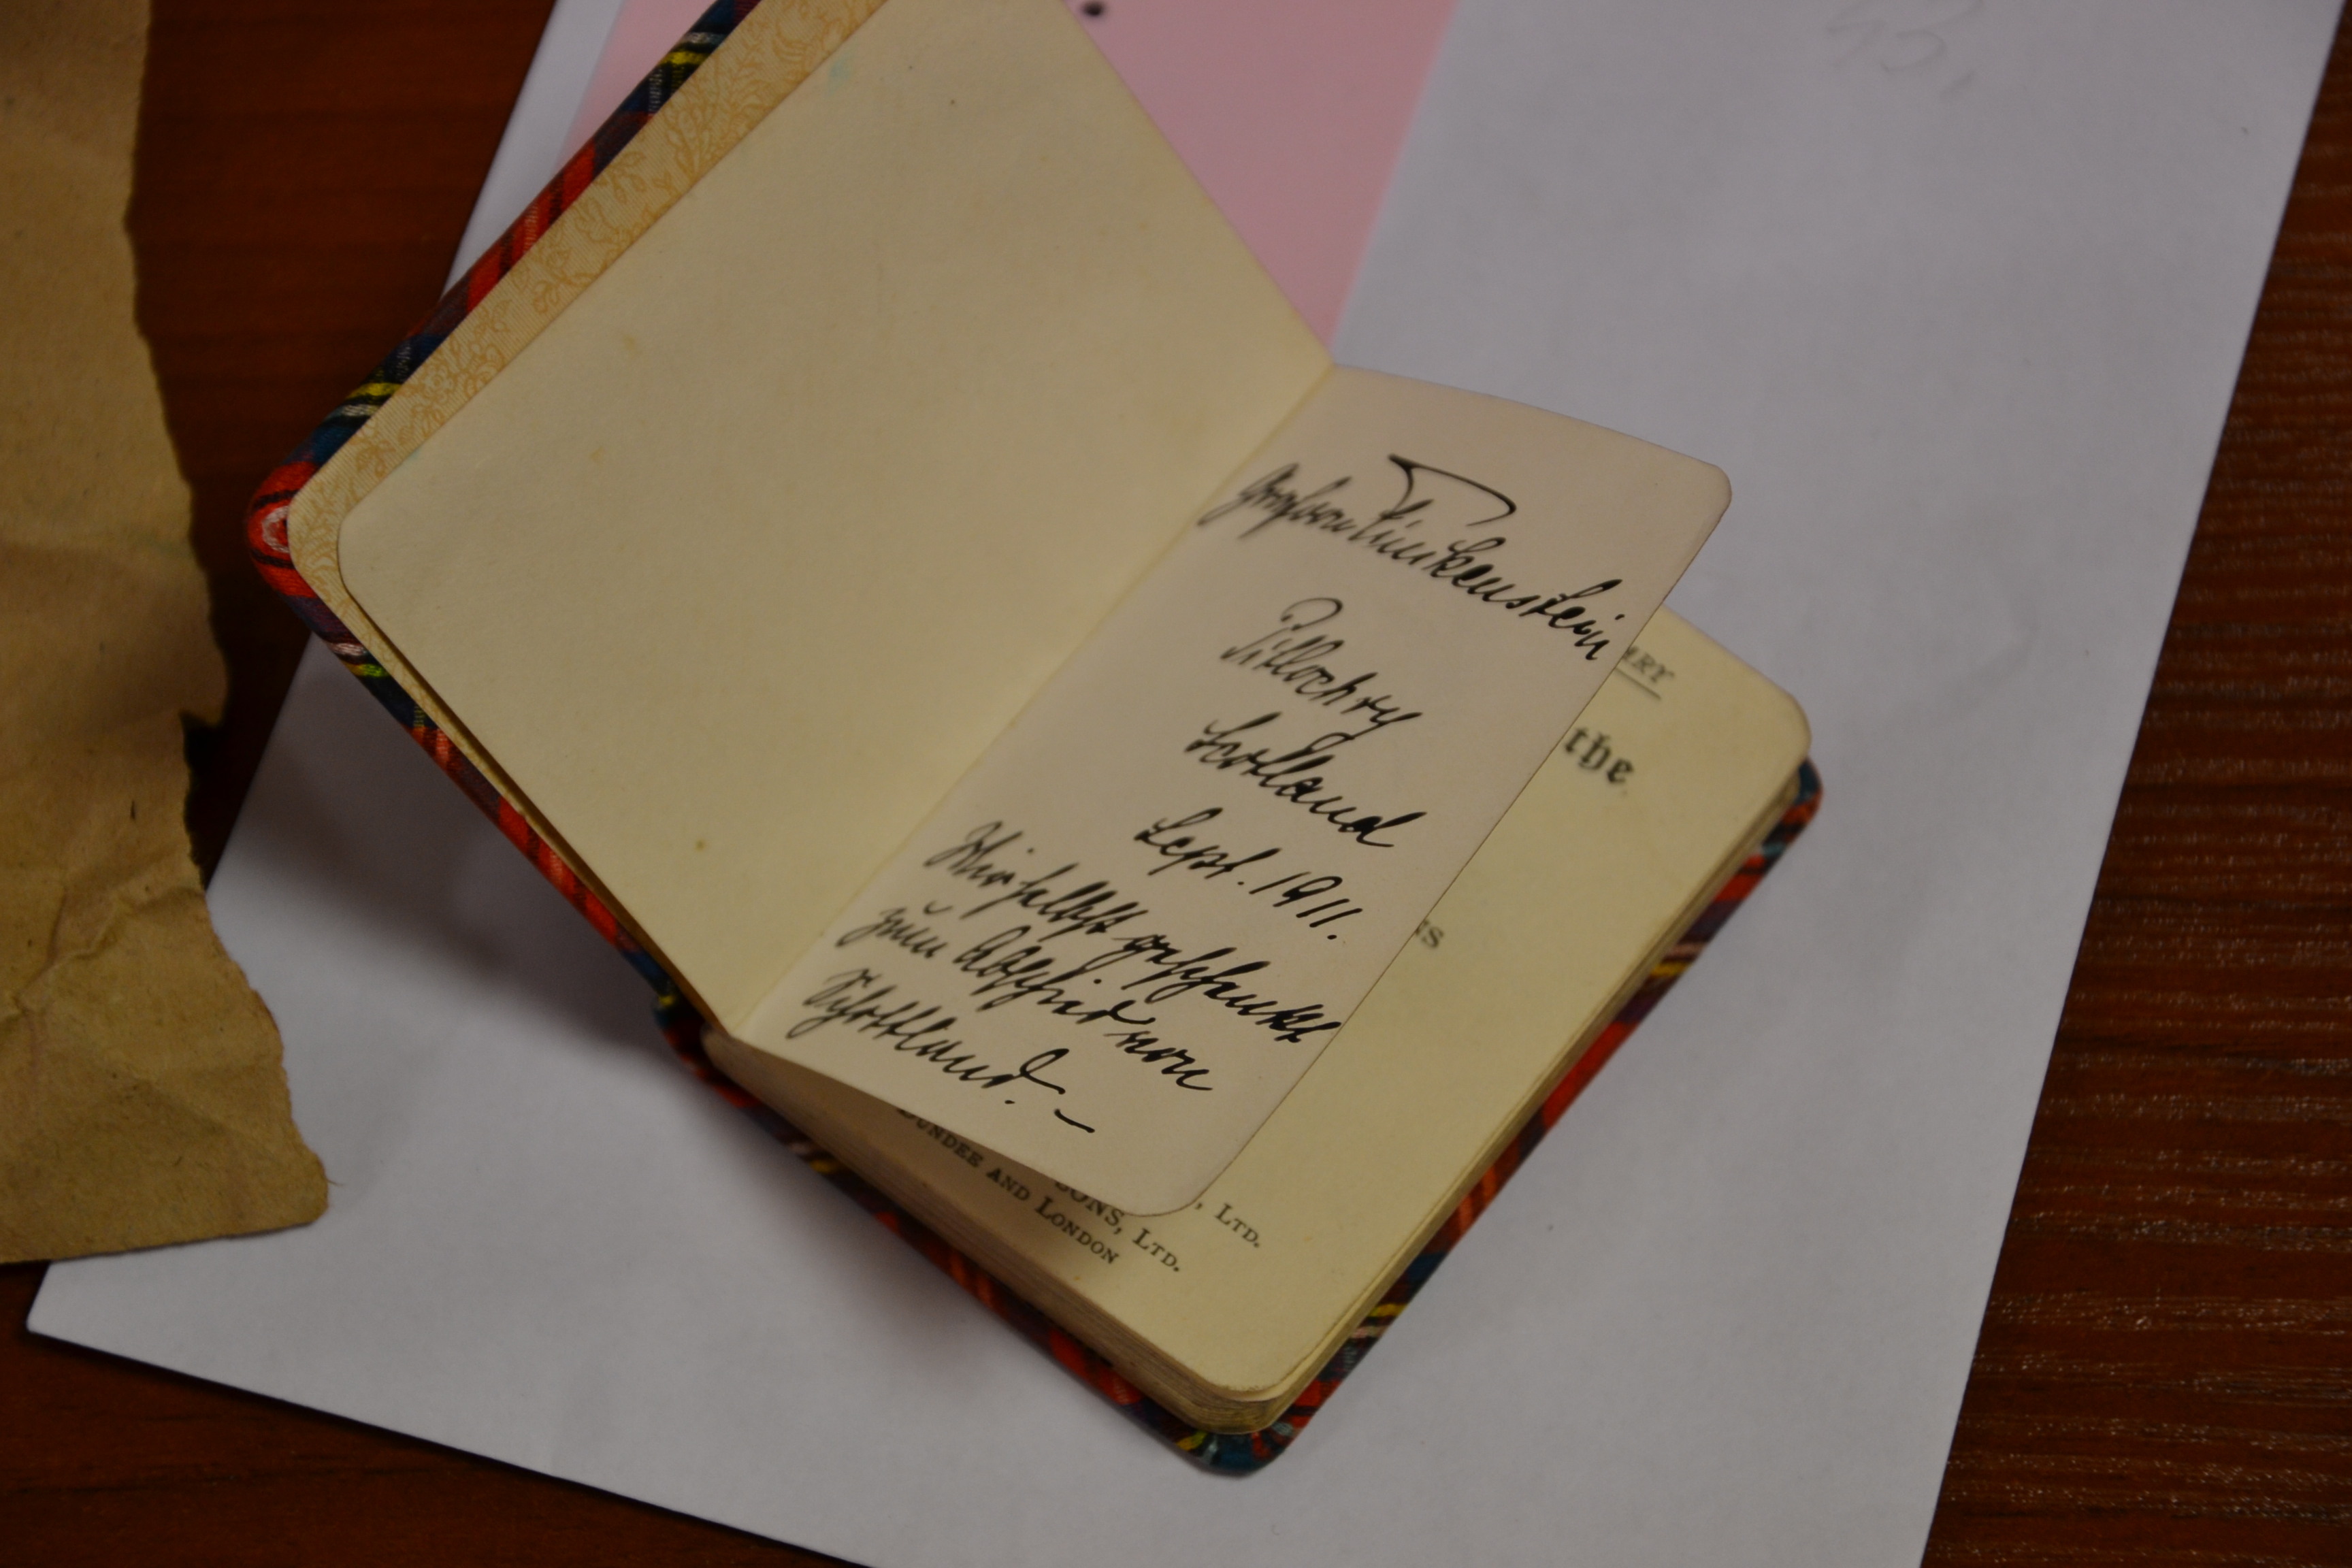 Graf von Finckenstein
Pitlochry
Scotland
Sept. 1911.
Mir selbst geschenkt
zum Abschied von
Schottland. –
the
SONS, LTD.
DUNDEE AND LONDON
, LTD.